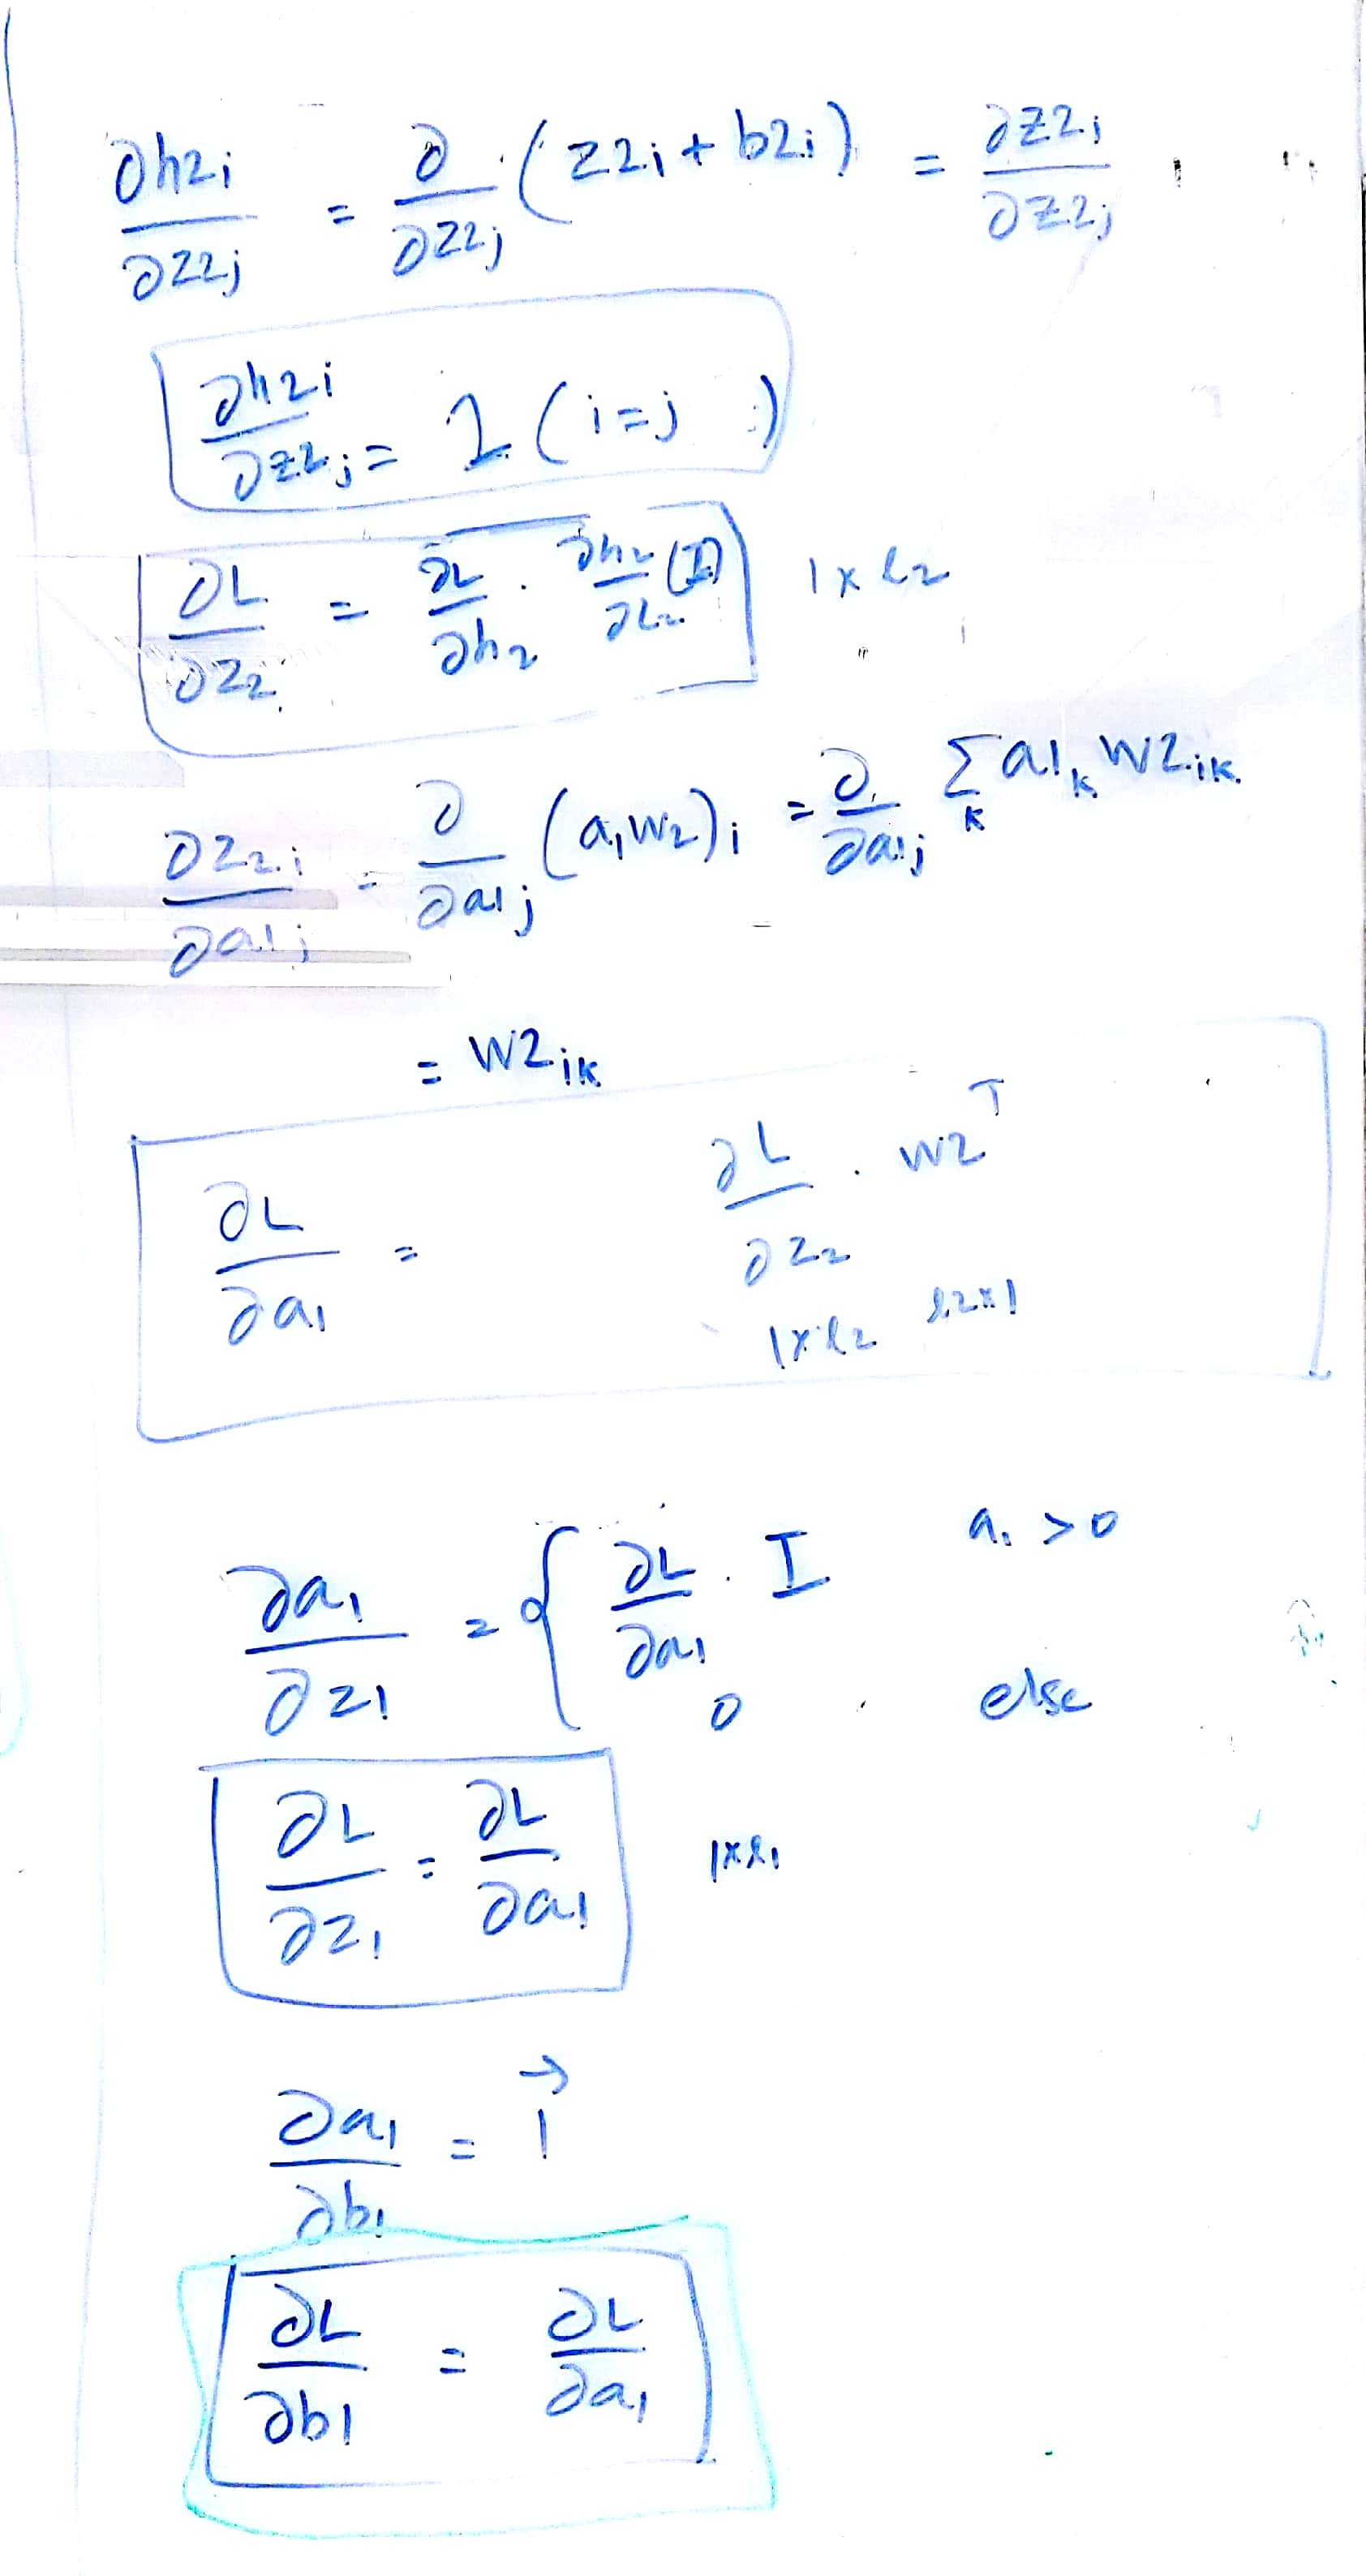 ∂h2i/∂z2j = ∂/∂z2j (z2i + b2i) = ∂z2i/∂z2j
∂h2i/∂z2j = 1 (i=j)
∂L/∂z2 = ∂L/∂h2 · ∂h2/∂z2 (I) 1×l2
∂z2i/∂a1j = ∂/∂a1j (a1w2)i = ∂/∂a1j Σk a1k W2ik
= W2ik
∂L/∂a1 = ∂L/∂z2 · W2^T
1×l2 l2×1
∂a1/∂z1 = { ∂L/∂a1 · I a1 > 0
0 else
∂L/∂z1 = ∂L/∂a1 1×l1
∂a1/∂b1 = 1⃗
∂L/∂b1 = ∂L/∂a1